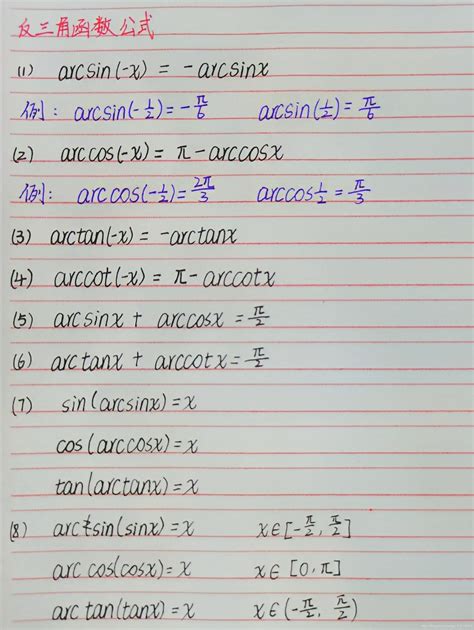 反三角函数公式
(1) arcsin(-x) = -arcsinx
例: arcsin(-1/2)=-π/6 arcsin(1/2)=π/6
(2) arccos(-x)= π-arccosx
例: arccos(-1/2)=2π/3 arccos1/2=π/3
(3) arctan(-x)=-arctanx
(4) arccot(-x)= π-arccotx
(5) arcsinx + arccosx=π/2
(6) arctanx + arccotx=π/2
(7) sin(arcsinx)=x
cos(arccosx)=x
tan(arctanx)=x
(8) arcsin(sinx)=x x∈[-π/2, π/2]
arccos(cosx)=x x∈[0,π]
arctan(tanx)=x x∈(-π/2, π/2)